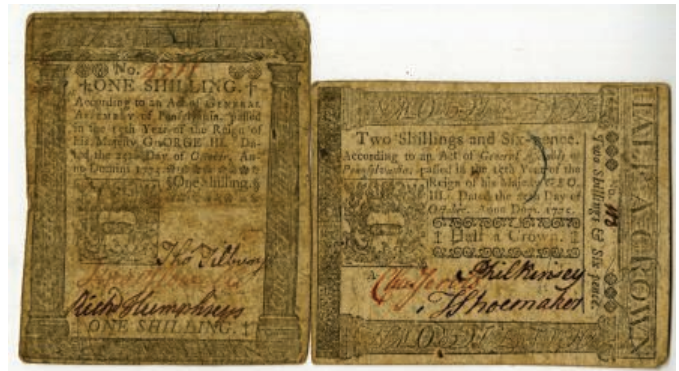 No.
ONE SHILLING.
According to an Act of GENERAL
ASSEMBLY of Pennsylvania, passed
in the 15th Year of the Reign of
His Majesty GEORGE III. Da-
ted the 25th Day of October, An-
no Domini
One Shilling.
Tho Tilbury
Rich Humphreys
ONE SHILLING.
Two Shillings and Six-pence.
According to an Act of General Assembly of
Pennsylvania, passed in the 15th Year of the
Reign of his Majesty GEO.
III. Dated the 25th Day of
October, Anno Dom. 1775.
Half a Crown.
A
Phil Kinsey
J Shoemaker
No.
Two Shillings & Six-pence.
HALF A CROWN